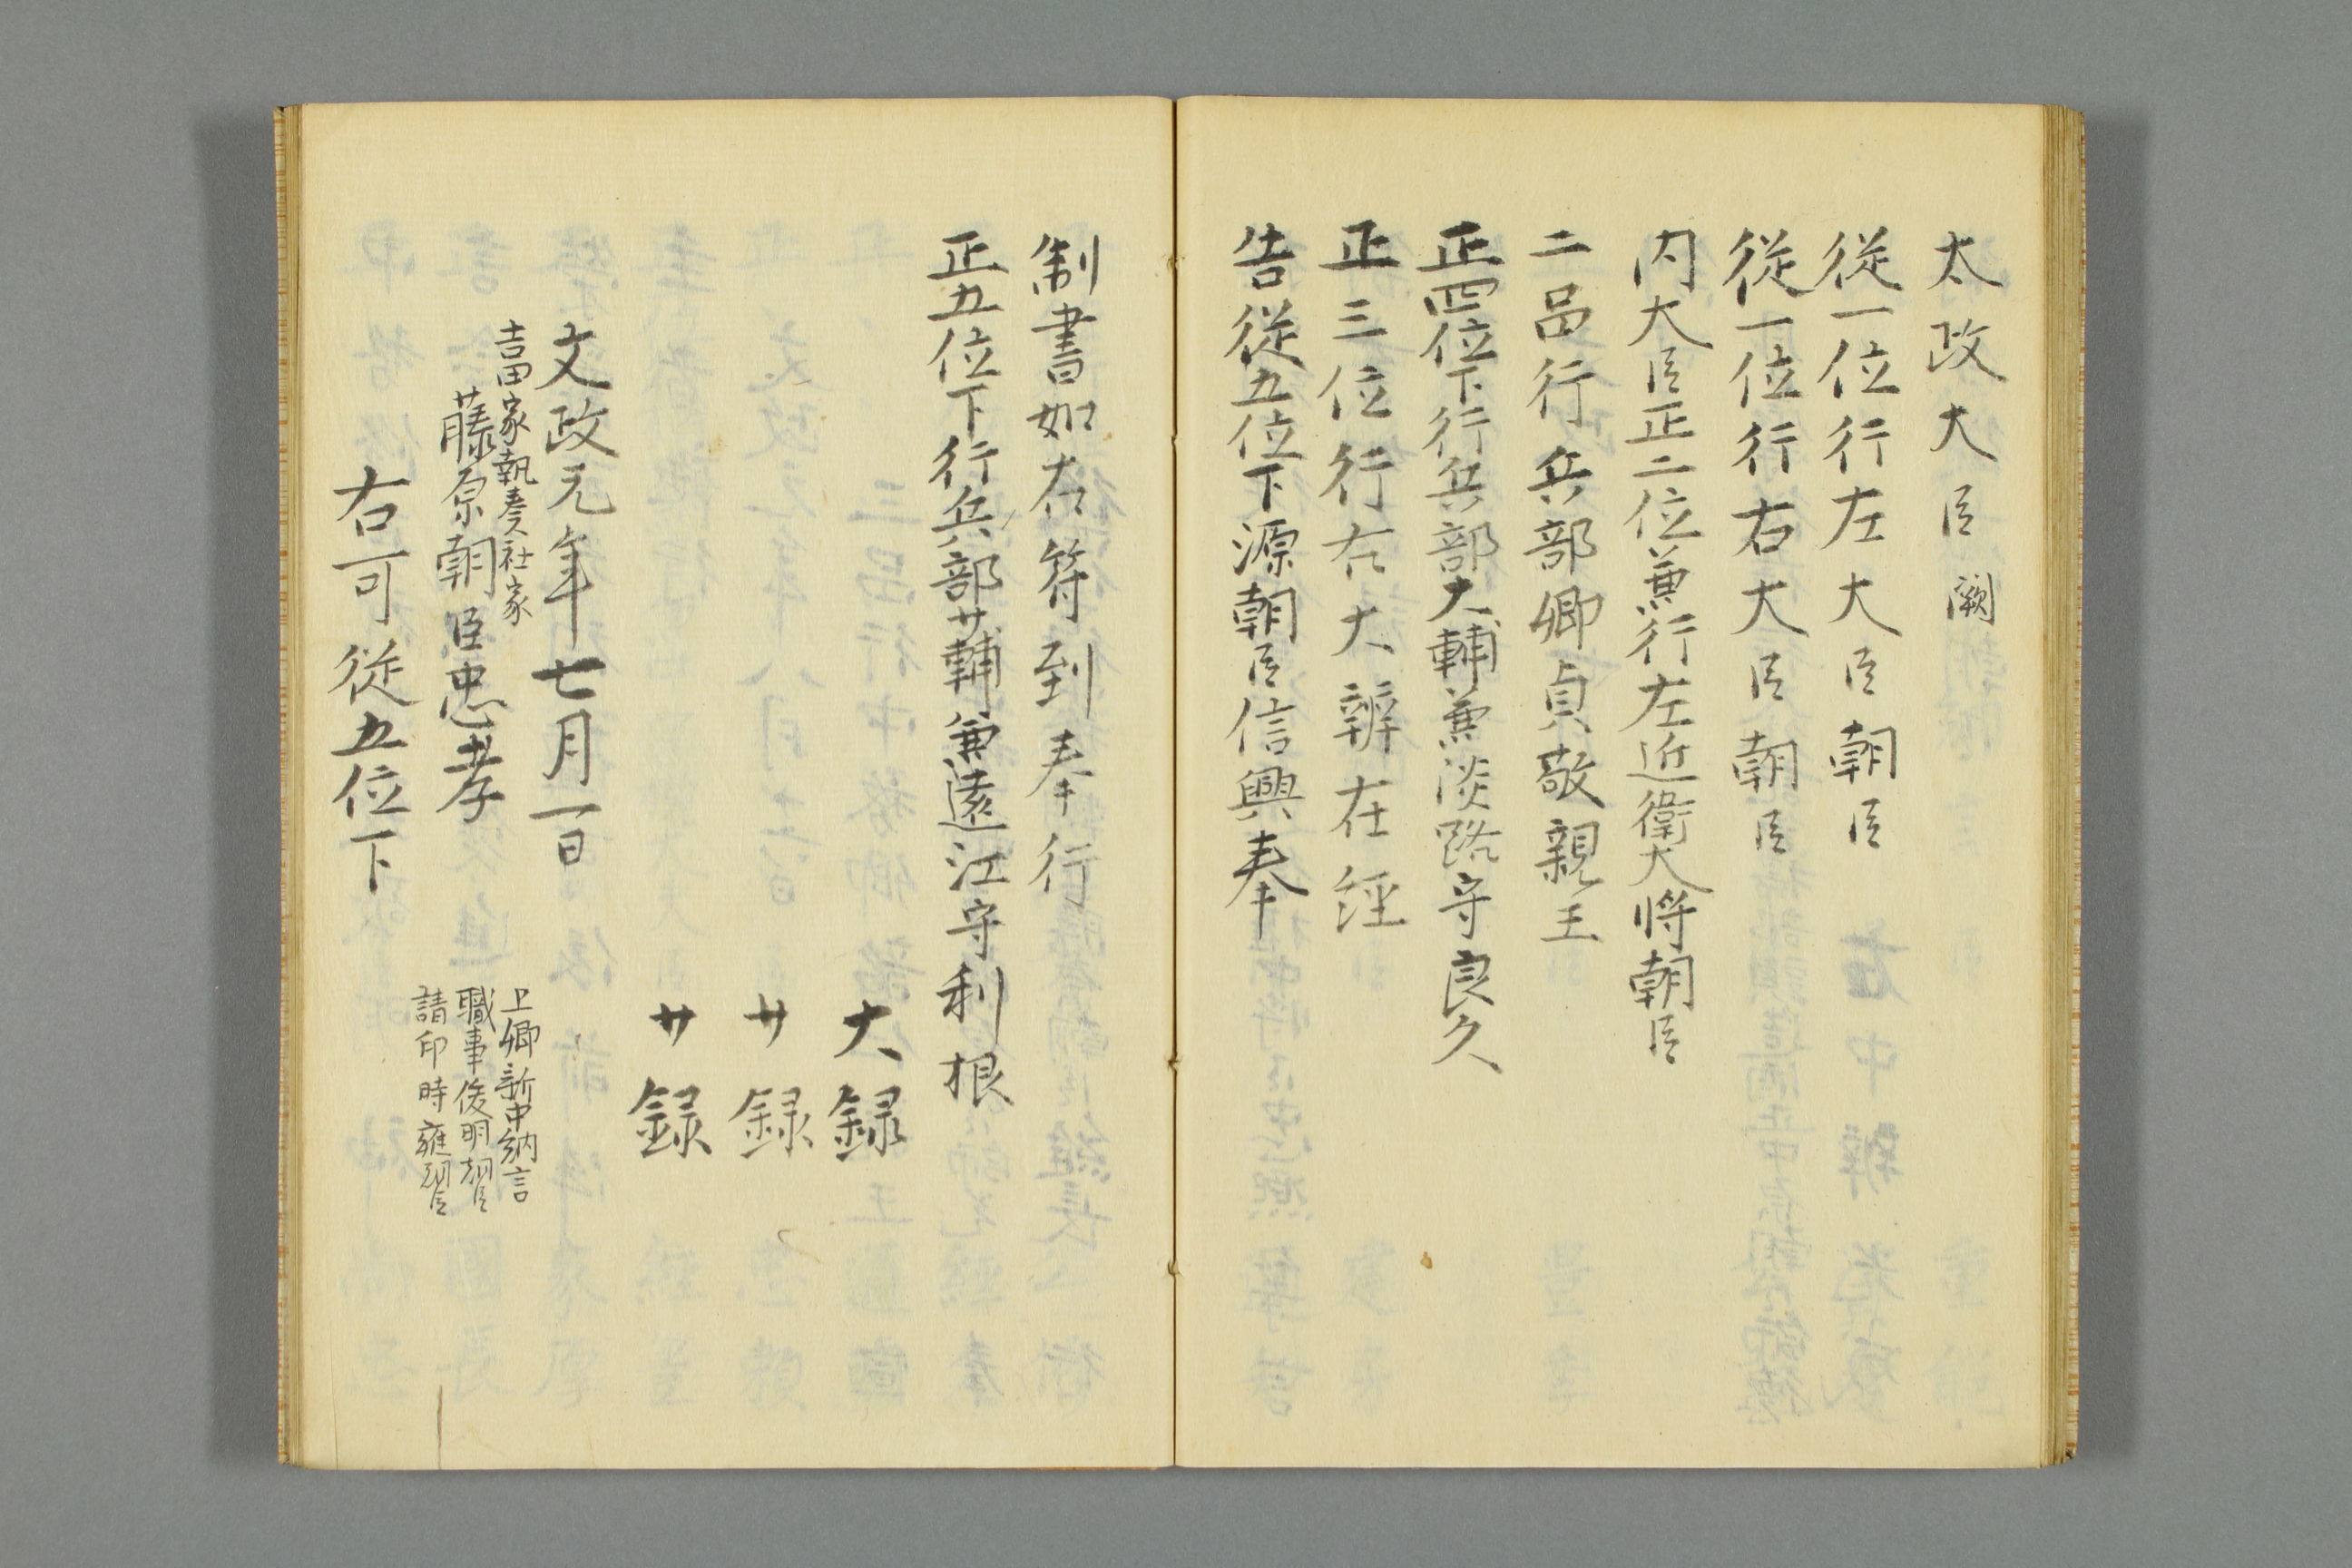 太政大臣闕
従一位行左大臣朝臣
従一位行右大臣朝臣
内大臣正二位兼行左近衛大将朝臣
二品行兵部卿貞敬親王
正四位下行兵部大輔兼淡路守良久
正三位行右大辨在経
告従五位下源朝臣信興奉
制書如右符到奉行
正五位下行兵部少輔兼遠江守利根
大録
少録
少録
文政元年七月一日
吉田家執奏社家
藤原朝臣忠孝
右可従五位下
上卿新中納言
職事俊明朝臣
請印時雍朝臣